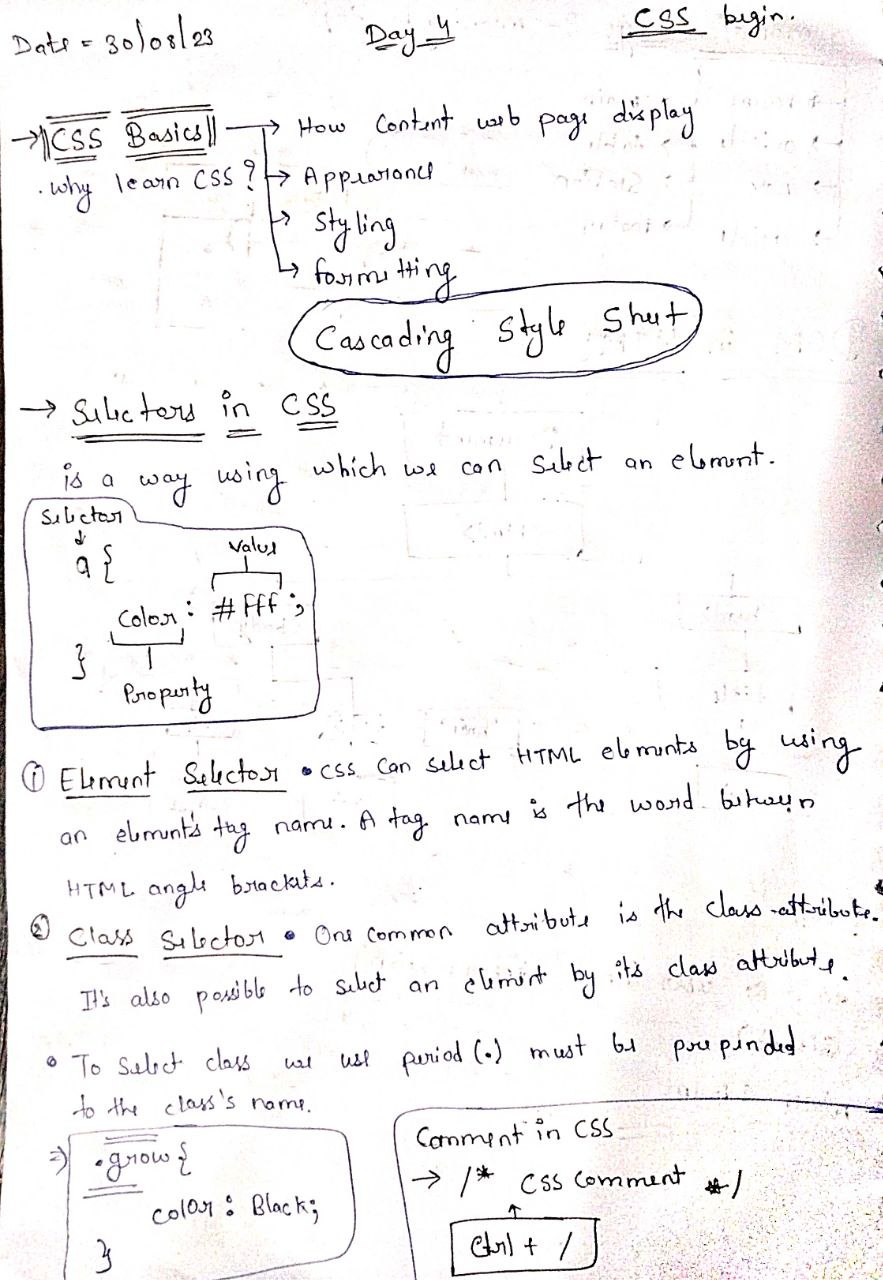 Date = 30/08/23 Day 4 CSS begin.
→ CSS Basics → How Content web page display
. why learn CSS ? → Appearance
→ Styling
→ formetting
Cascading Style Sheet
→ Selectors in CSS
is a way using which we can select an element.
Selector
↓
a { Value
Color : #fff ;
}
Property
① Element Selector • CSS can select HTML elements by using
an element's tag name. A tag name is the word between
HTML angle brackets.
② Class Selector • One common attribute is the class-attribute.
It's also possible to select an element by its class attribute.
• To Select class we use period (.) must be prepended
to the class's name.
⇒ .grow {
color : Black;
}
Comment in CSS
→ /* CSS Comment */
↑
Ctrl + /